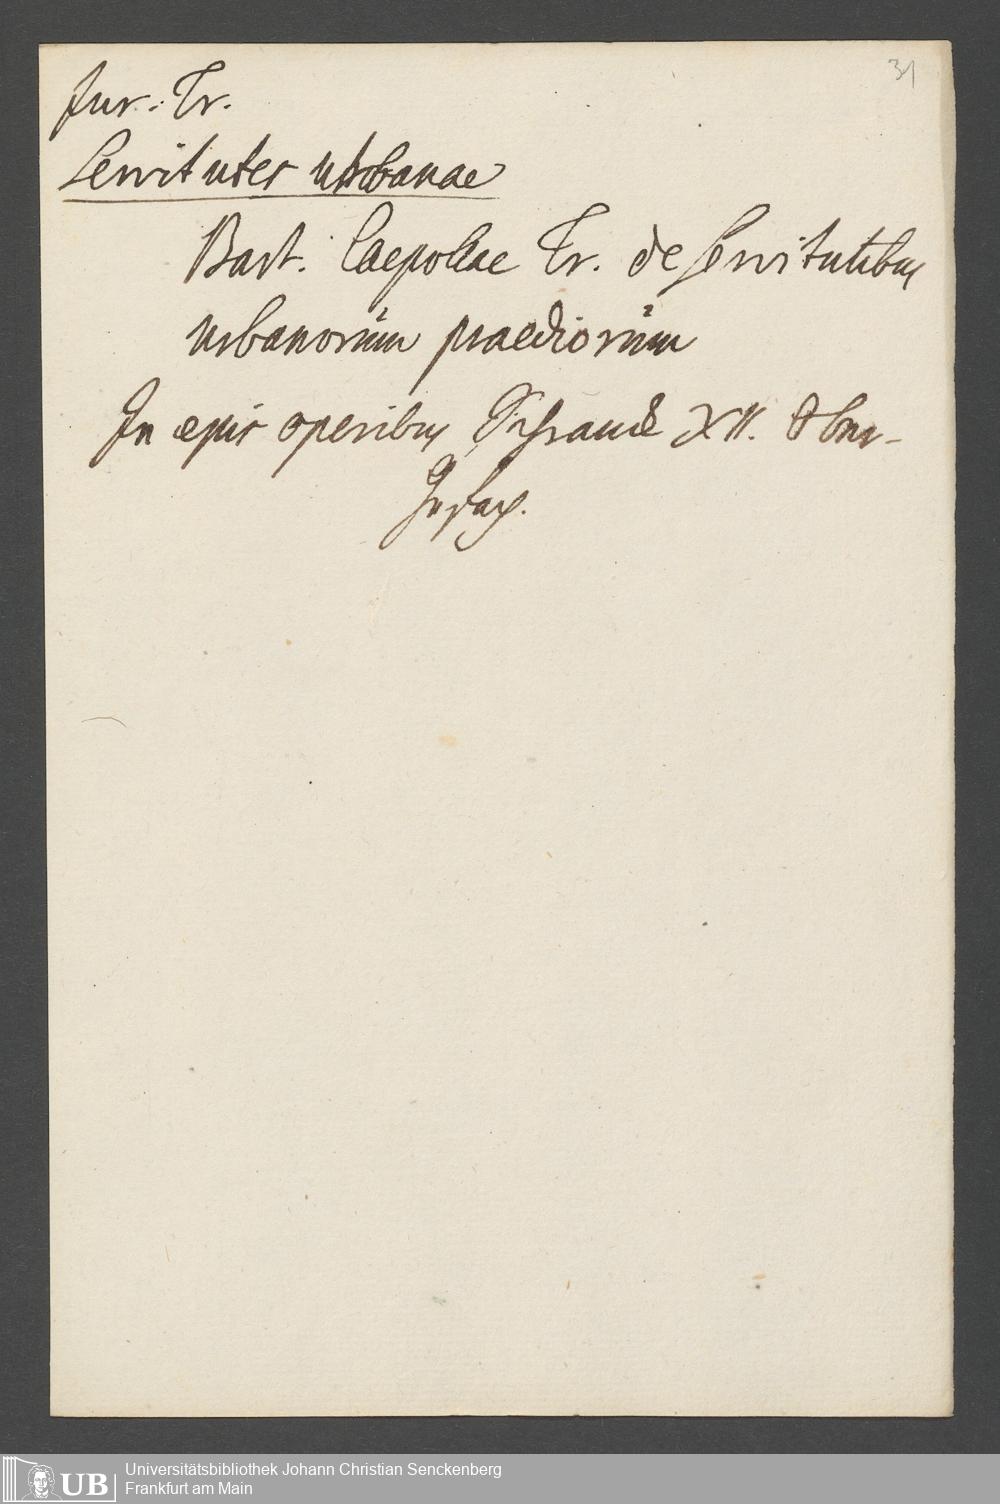 31
Jur. Tr.
Servitutes urbanae
Bart. Caepollae Tr. de Servitutibus
urbanorum praediorum
In ejus operibus Schranck XII. Ober-
UB Universitätsbibliothek Johann Christian Senckenberg
Frankfurt am Main